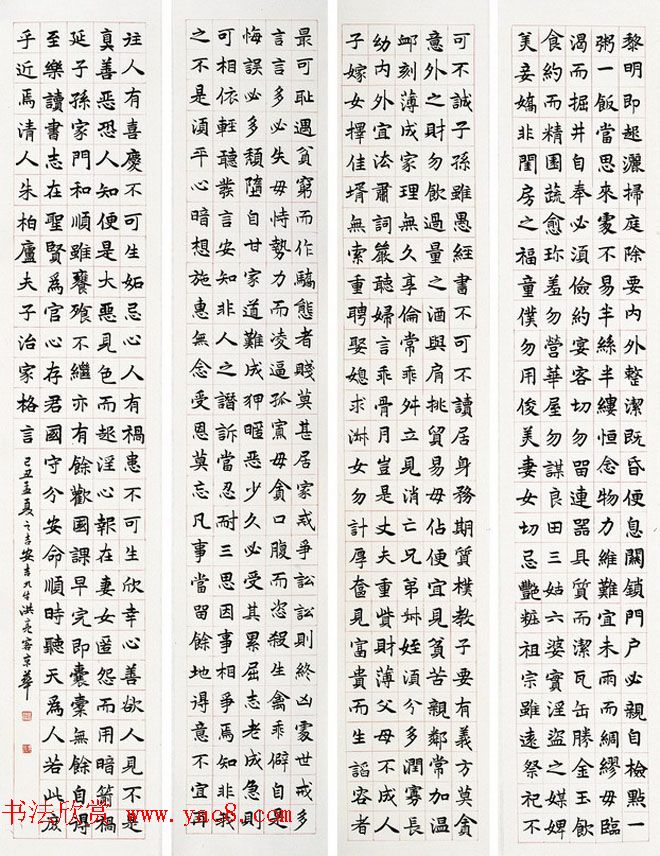 黎明即起灑掃庭除要內外整潔既昏便息關鎖門户必親自檢點一
粥一飯當思來處不易半絲半縷恒念物力維難宜未雨而綢繆毋臨
渴而掘井自奉必須儉約宴客切勿留連器具質而潔瓦缶勝金玉飲
食約而精園蔬愈珍羞勿營華屋勿謀良田三姑六婆實淫盜之媒婢
美妾嬌非閨房之福童僕勿用俊美妻女切忌艷粧祖宗雖遠祭祀不
可不誠子孫雖愚經書不可不讀居身務期質樸教子要有義方莫貪
意外之財勿飲過量之酒與肩挑貿易毋佔便宜見貧苦親鄰常加温
卹刻薄成家理無久享倫常乖舛立見消亡兄弟姊姪須分多潤寡長
幼內外宜法肅詞嚴聽婦言乖骨月豈是丈夫重貲財薄父母不成人
子嫁女擇佳壻無索重聘娶媳求淋女勿計厚奩見富貴而生諂容者
最可恥遇貧窮而作驕態者賤莫甚居家戒爭訟訟則終凶處世戒多
言言多必失毋恃勢力而凌逼孤寡毋貪口腹而恣殺生禽乖僻自是
悔誤必多頹墮自甘家道難成狎暱惡少久必受其累屈志老成急則
可相依輕聽發言安知非人之譖訴當忍耐三思因事相爭焉知非我
之不是須平心暗想施惠無念受恩莫忘凡事當留餘地得意不宜再
往人有喜慶不可生妬忌心人有禍患不可生欣幸心善欲人見不是
真善惡恐人知便是大惡見色而起淫心報在妻女匿怨而用暗箭禍
延子孫家門和順雖饔飱不繼亦有餘歡國課早完即囊橐無餘自得
至樂讀書志在聖賢為官心存君國守分安命順時聽天為人若此庶
乎近焉清人朱柏廬夫子治家格言
己丑孟夏之吉安吉洪亮客京華
书法欣赏 www.yac8.com